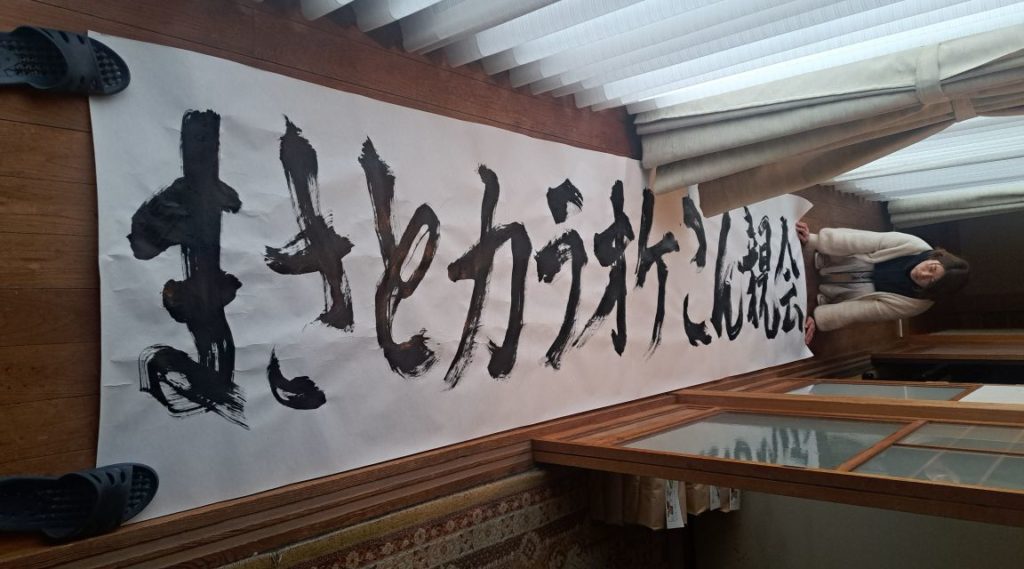 まさとカラオケこん親会